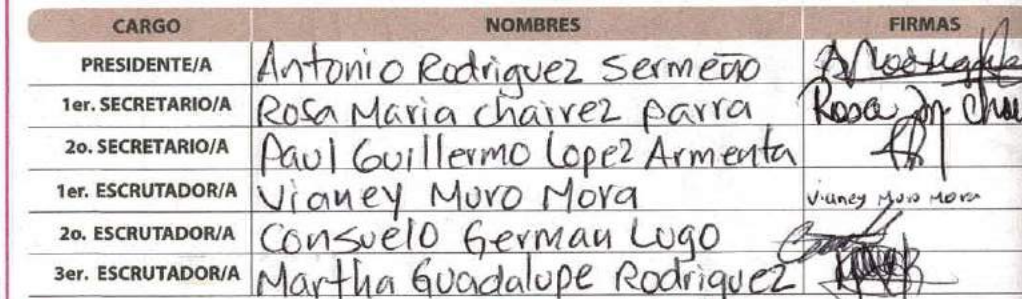 CARGO NOMBRES FIRMAS
PRESIDENTE/A Antonio Rodriguez Sermeño
1er. SECRETARIO/A Rosa Maria chairez parra Rosa
2o. SECRETARIO/A Paul Guillermo Lopez Armenta
1er. ESCRUTADOR/A Vianey Muro Mora Vianey Muro Mora
2o. ESCRUTADOR/A Consuelo German Lugo
3er. ESCRUTADOR/A Martha Guadalupe Rodriguez